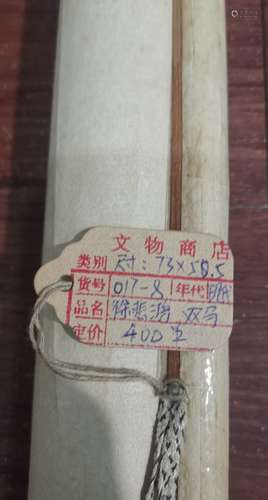 文物商店
类别 尺寸：73×50.5
货号 017-8 年代 现代
品名 徐悲鸿 双马
定价 400元